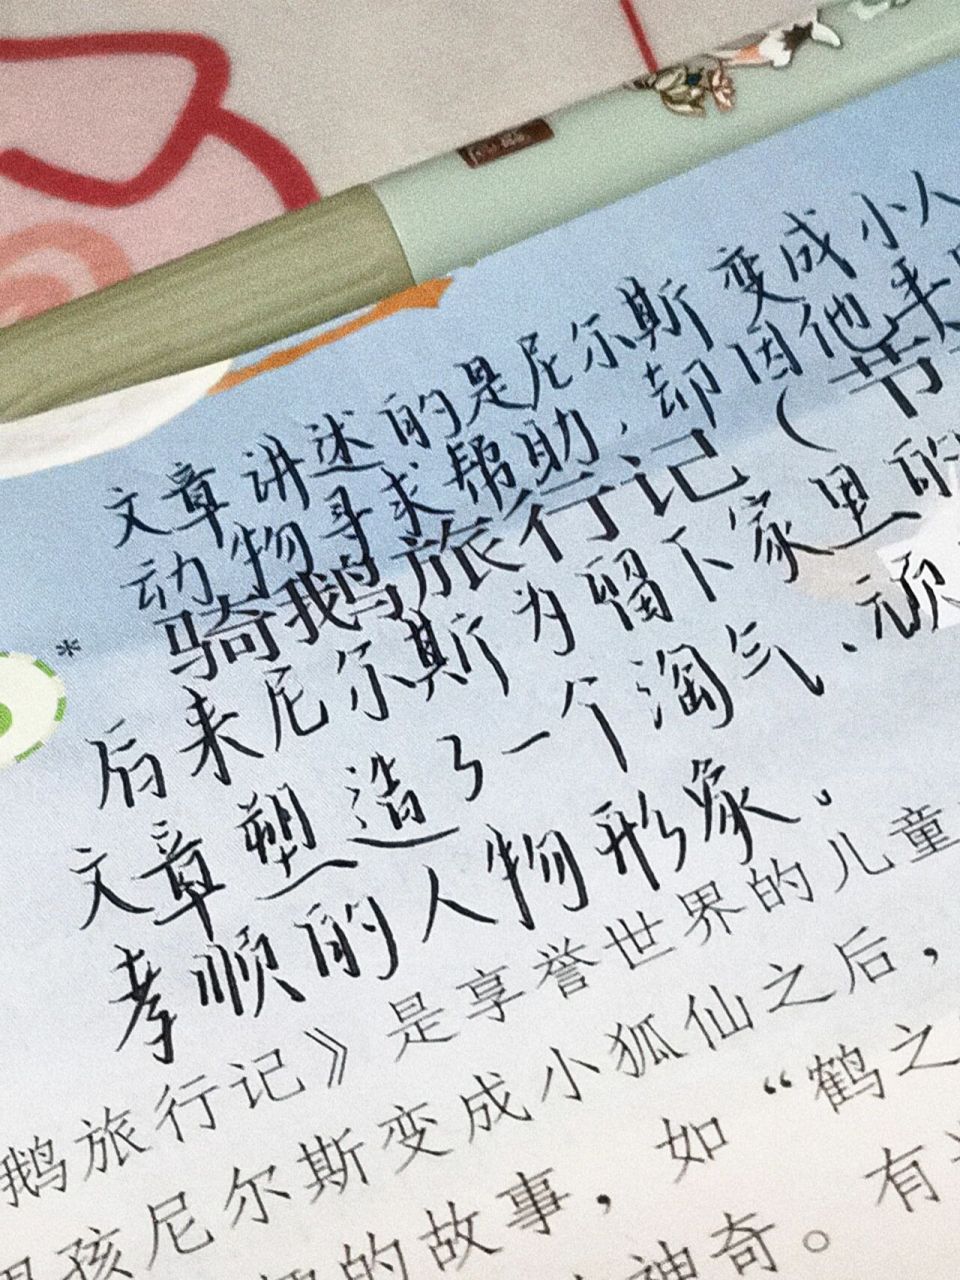 文章讲述的是尼尔斯变成小人
动物寻求帮助,却因他平
* 骑鹅旅行记(节
后来尼尔斯为留下家里的
文章塑造了一个淘气、顽
孝顺的人物形象.
鹅旅行记》是享誉世界的儿童
孩尼尔斯变成小狐仙之后,
的故事,如“鹤之
神奇。有